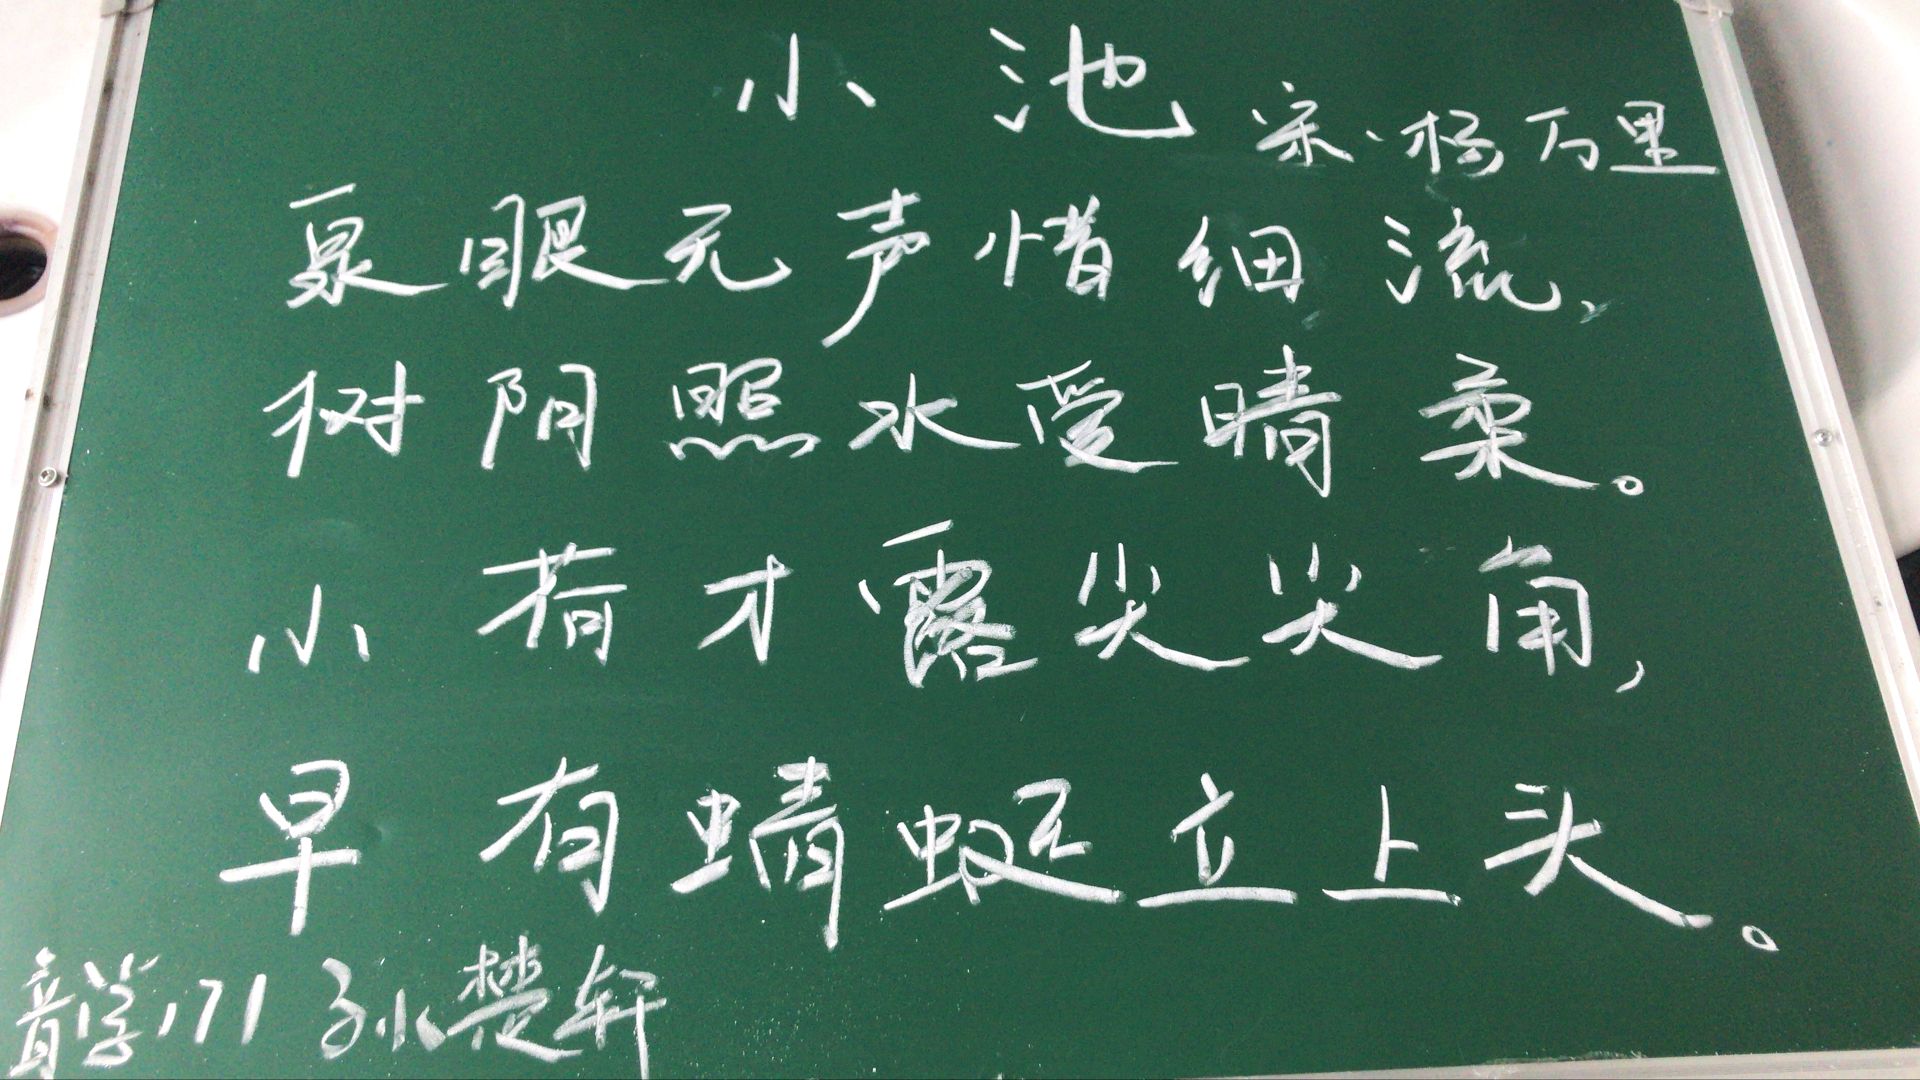 小池 宋·杨万里
泉眼无声惜细流,
树阴照水受晴柔。
小荷才露尖尖角,
早有蜻蜓立上头。
音学171 孙楚轩